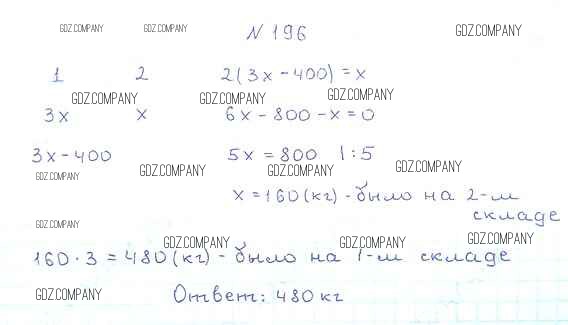 GDZ.COMPANY GDZ.COMPANY № 196 GDZ.COMPANY
1 2 2(3x - 400) = x
GDZ.COMPANY GDZ.COMPANY GDZ.COMPANY
3x x 6x - 800 - x = 0
3x - 400 5x = 800 | :5
GDZ.COMPANY GDZ.COMPANY GDZ.COMPANY GDZ.COMPANY
x = 160 (кг) - было на 2-м
складе
GDZ.COMPANY
GDZ.COMPANY GDZ.COMPANY GDZ.COMPANY
160 · 3 = 480 (кг) - было на 1-м складе
GDZ.COMPANY Ответ: 480 кг